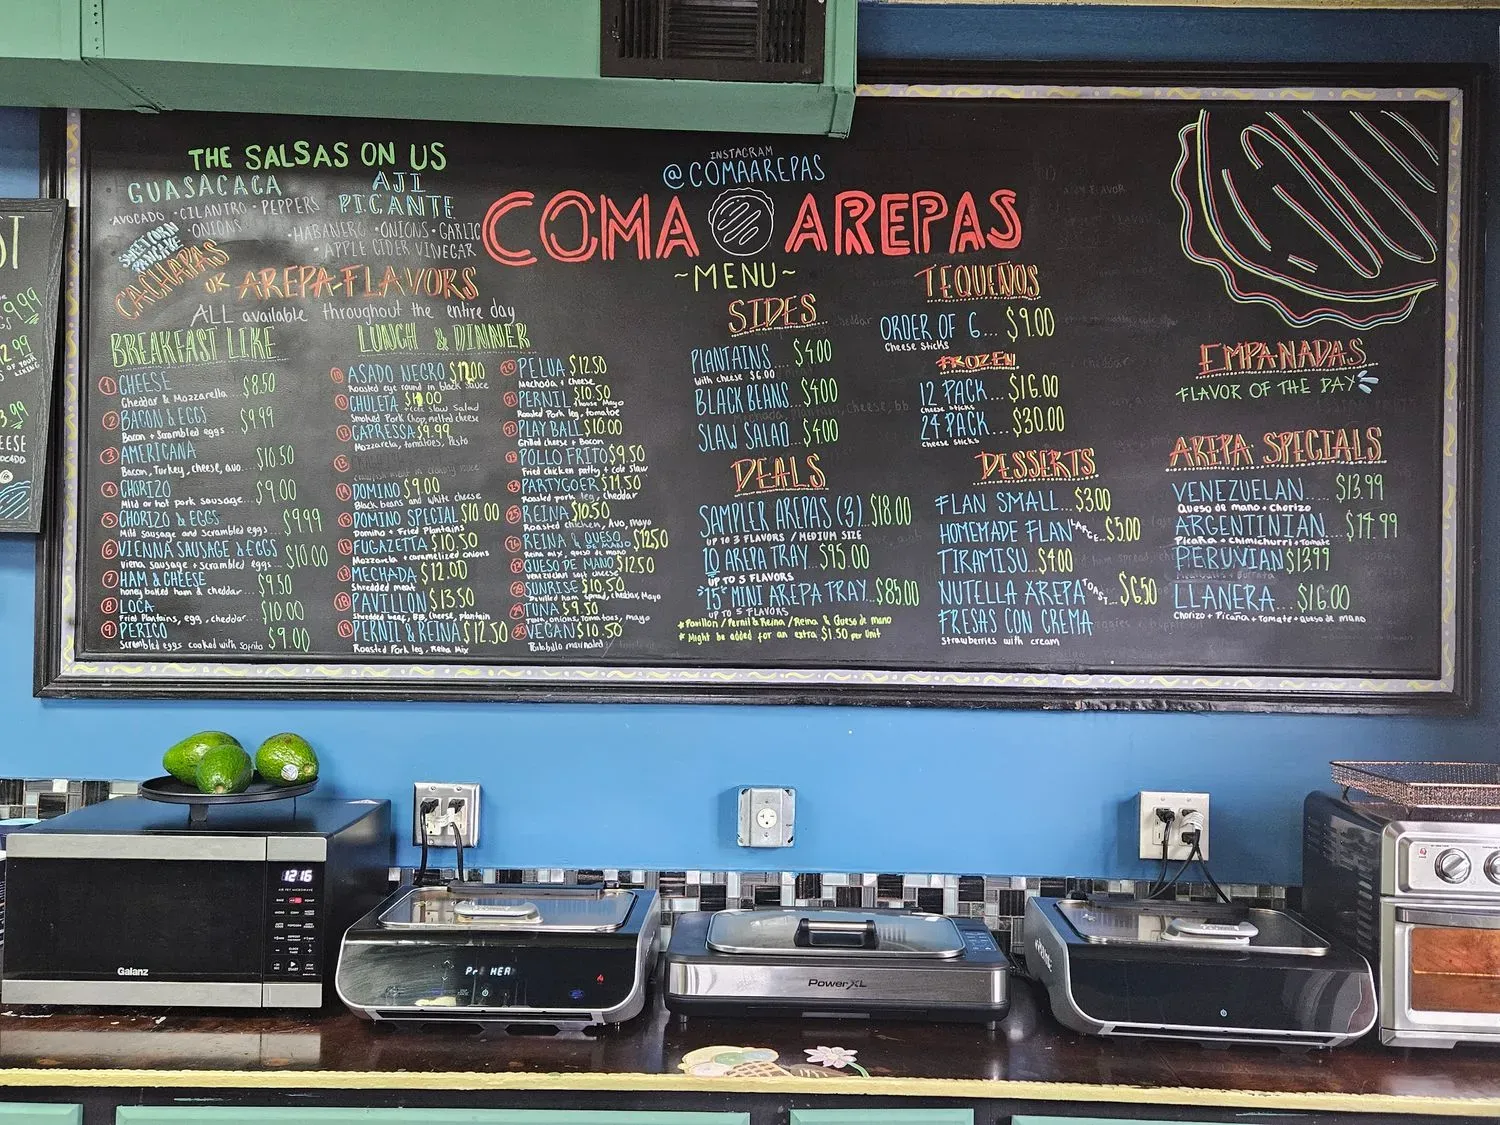 THE SALSAS ON US
GUASACACA
·AVOCADO ·CILANTRO ·PEPPERS
·ONIONS
AJI
PICANTE
·HABANERO ·ONIONS ·GARLIC
·APPLE CIDER VINEGAR
SWEET CORN
PANCAKE
CACHAPAS
OR AREPA FLAVORS
ALL available throughout the entire day
BREAKFAST LIKE
1 CHEESE $8.50
Cheddar & Mozzarella...
2 BACON & EGGS $9.99
Bacon + Scrambled eggs...
3 AMERICANA
Bacon, Turkey, cheese, avo... $10.50
4 CHORIZO
Mild or hot pork sausage... $9.00
5 CHORIZO & EGGS
Mild Sausage and Scrambled eggs... $9.99
6 VIENNA SAUSAGE & EGGS
Vienna sausage + Scrambled eggs... $10.00
7 HAM & CHEESE
honey baked ham & cheddar... $9.50
8 LOCA
Fried Plantains, egg, cheddar... $10.00
9 PERICO
Scrambled eggs cooked with Sofrito $9.00
LUNCH & DINNER
10 ASADO NEGRO
Roasted eye round in black sauce
11 CHULETA
+ cole slaw Salad
Smoked Pork Chop, melted cheese
12 CAPRESSA $9.99
Mozzarella, tomatoes, Pesto
13
14 DOMINO $9.00
Black beans and white cheese
15 DOMINO SPECIAL $10.00
Domino + Fried Plantains
16 FUGAZETTA $10.50
Mozzarella + caramelized onions
17 MECHADA $12.00
Shredded meat
18 PAVILLON $13.50
Shredded beef, BB, cheese, plantain
19 PERNIL & REINA $12.50
Roasted Pork leg, Reina Mix
20 PELUA $12.50
Mechada + cheese
21 PERNIL $10.50
+ house Mayo
Roasted Pork leg, tomatoe
22 PLAY BALL $10.00
Grilled cheese + Bacon
23 POLLO FRITO $9.50
Fried chicken patty + cole slaw
24 PARTYGOER $11.50
Roasted pork leg, cheddar
25 REINA $10.50
Roasted chicken, Avo, mayo
26 REINA & QUESO
DE MANO $12.50
Reina mix, queso de mano
27 QUESO DE MANO $12.50
Venezuelan soft cheese
28 SUNRISE $10.50
Devilled ham Spread, cheddar, Mayo
29 TUNA $9.50
Tuna, onions, Tomatoes, mayo
30 VEGAN $10.50
Portobello marinated
INSTAGRAM
@COMAAREPAS
COMA AREPAS
~MENU~
SIDES
PLANTAINS... $4.00
With cheese $6.00
BLACK BEANS... $4.00
SLAW SALAD... $4.00
DEALS
SAMPLER AREPAS (3) $18.00
UP TO 3 FLAVORS / MEDIUM SIZE
10 AREPA TRAY... $95.00
UP TO 5 FLAVORS
"15" MINI AREPA TRAY... $85.00
UP TO 5 FLAVORS
* Pavillon / Pernil & Reina / Reina & Queso de mano
* Might be added for an extra $1.50 per Unit
TEQUEÑOS
ORDER OF 6... $9.00
Cheese Sticks
FROZEN
12 PACK... $16.00
cheese sticks
24 PACK... $30.00
cheese sticks
DESSERTS
FLAN SMALL... $3.00
HOMEMADE FLAN LARGE... $5.00
TIRAMISU... $4.00
NUTELLA AREPA TOAST... $6.50
FRESAS CON CREMA
Strawberries with cream
EMPANADAS
FLAVOR OF THE DAY
AREPA SPECIALS
VENEZUELAN.... $13.99
Queso de mano + Chorizo
ARGENTINIAN... $14.99
Picaña + Chimichurri + Tomate
PERUVIAN $13.99
LLANERA... $16.00
Chorizo + Picaña + Tomate + queso de mano
12:16
Galanz
PrE HEA
PowerXL